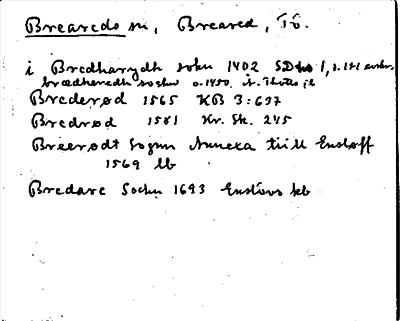 Breareds sn, Breared, Tö.
i Bredharydh sokn 1402 SDns 1, s. 121
brædheredh sochn o. 1450
Brederød 1565 KB 3:637
Bredrød 1581 Kr. Sk. 245
Breerødt Sogn Annexa till Ensloff
1569 lb
Bredare Sochn 1693 Enslövs kb